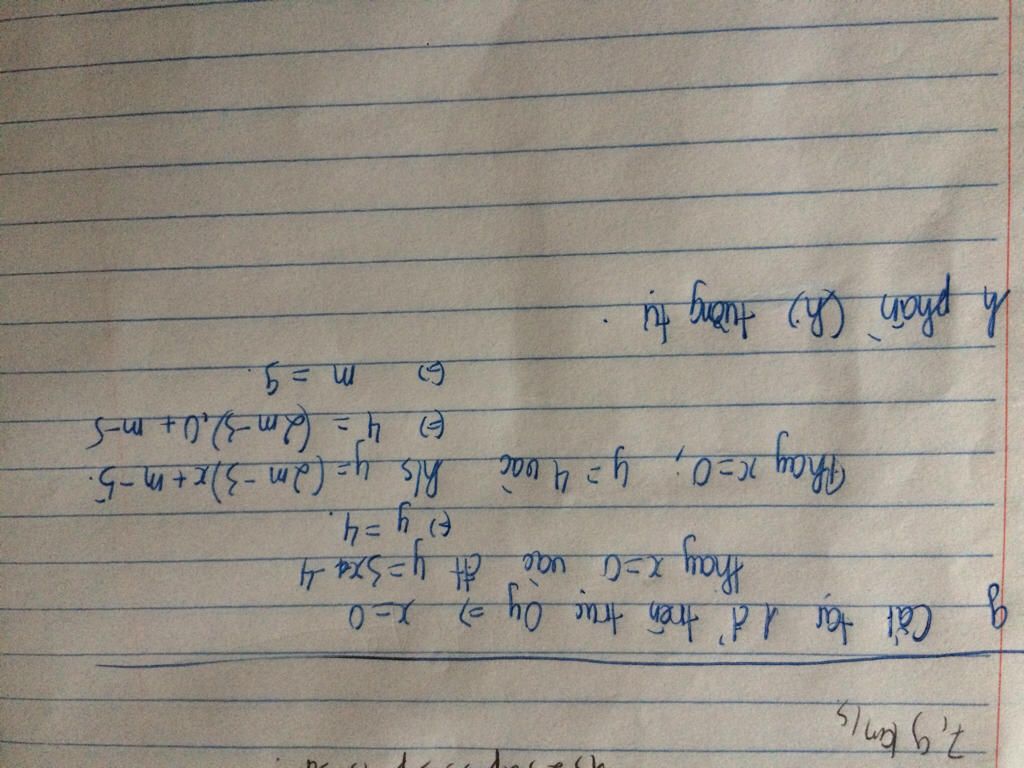 7,9 km/s
g Cắt tại 1 đ' trên trục Oy => x=0
thay x=0 vào đt y=3x+4
<=> y =4.
Thay x=0; y=4 vào h/s y=(2m-3)x+m-5.
<=> 4 = (2m-3).0+m-5
<=> m = 9.
h phần (h) tương tự.